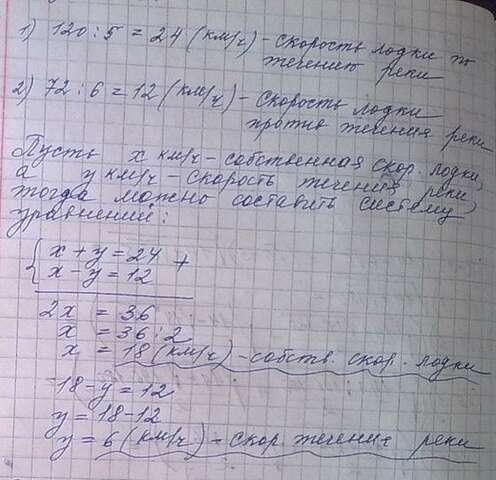 1) 120 : 5 = 24 (км/ч) - скорость лодки по
течению реки
2) 72 : 6 = 12 (км/ч) - скорость лодки
против течения реки
Пусть x км/ч - собственная скор. лодки,
а y км/ч - скорость течения реки,
тогда можно составить систему
уравнений:
{ x + y = 24
x - y = 12 +
2x = 36
x = 36 : 2
x = 18 (км/ч) - собств. скор. лодки
18 - y = 12
y = 18 - 12
y = 6 (км/ч) - скор. течения реки